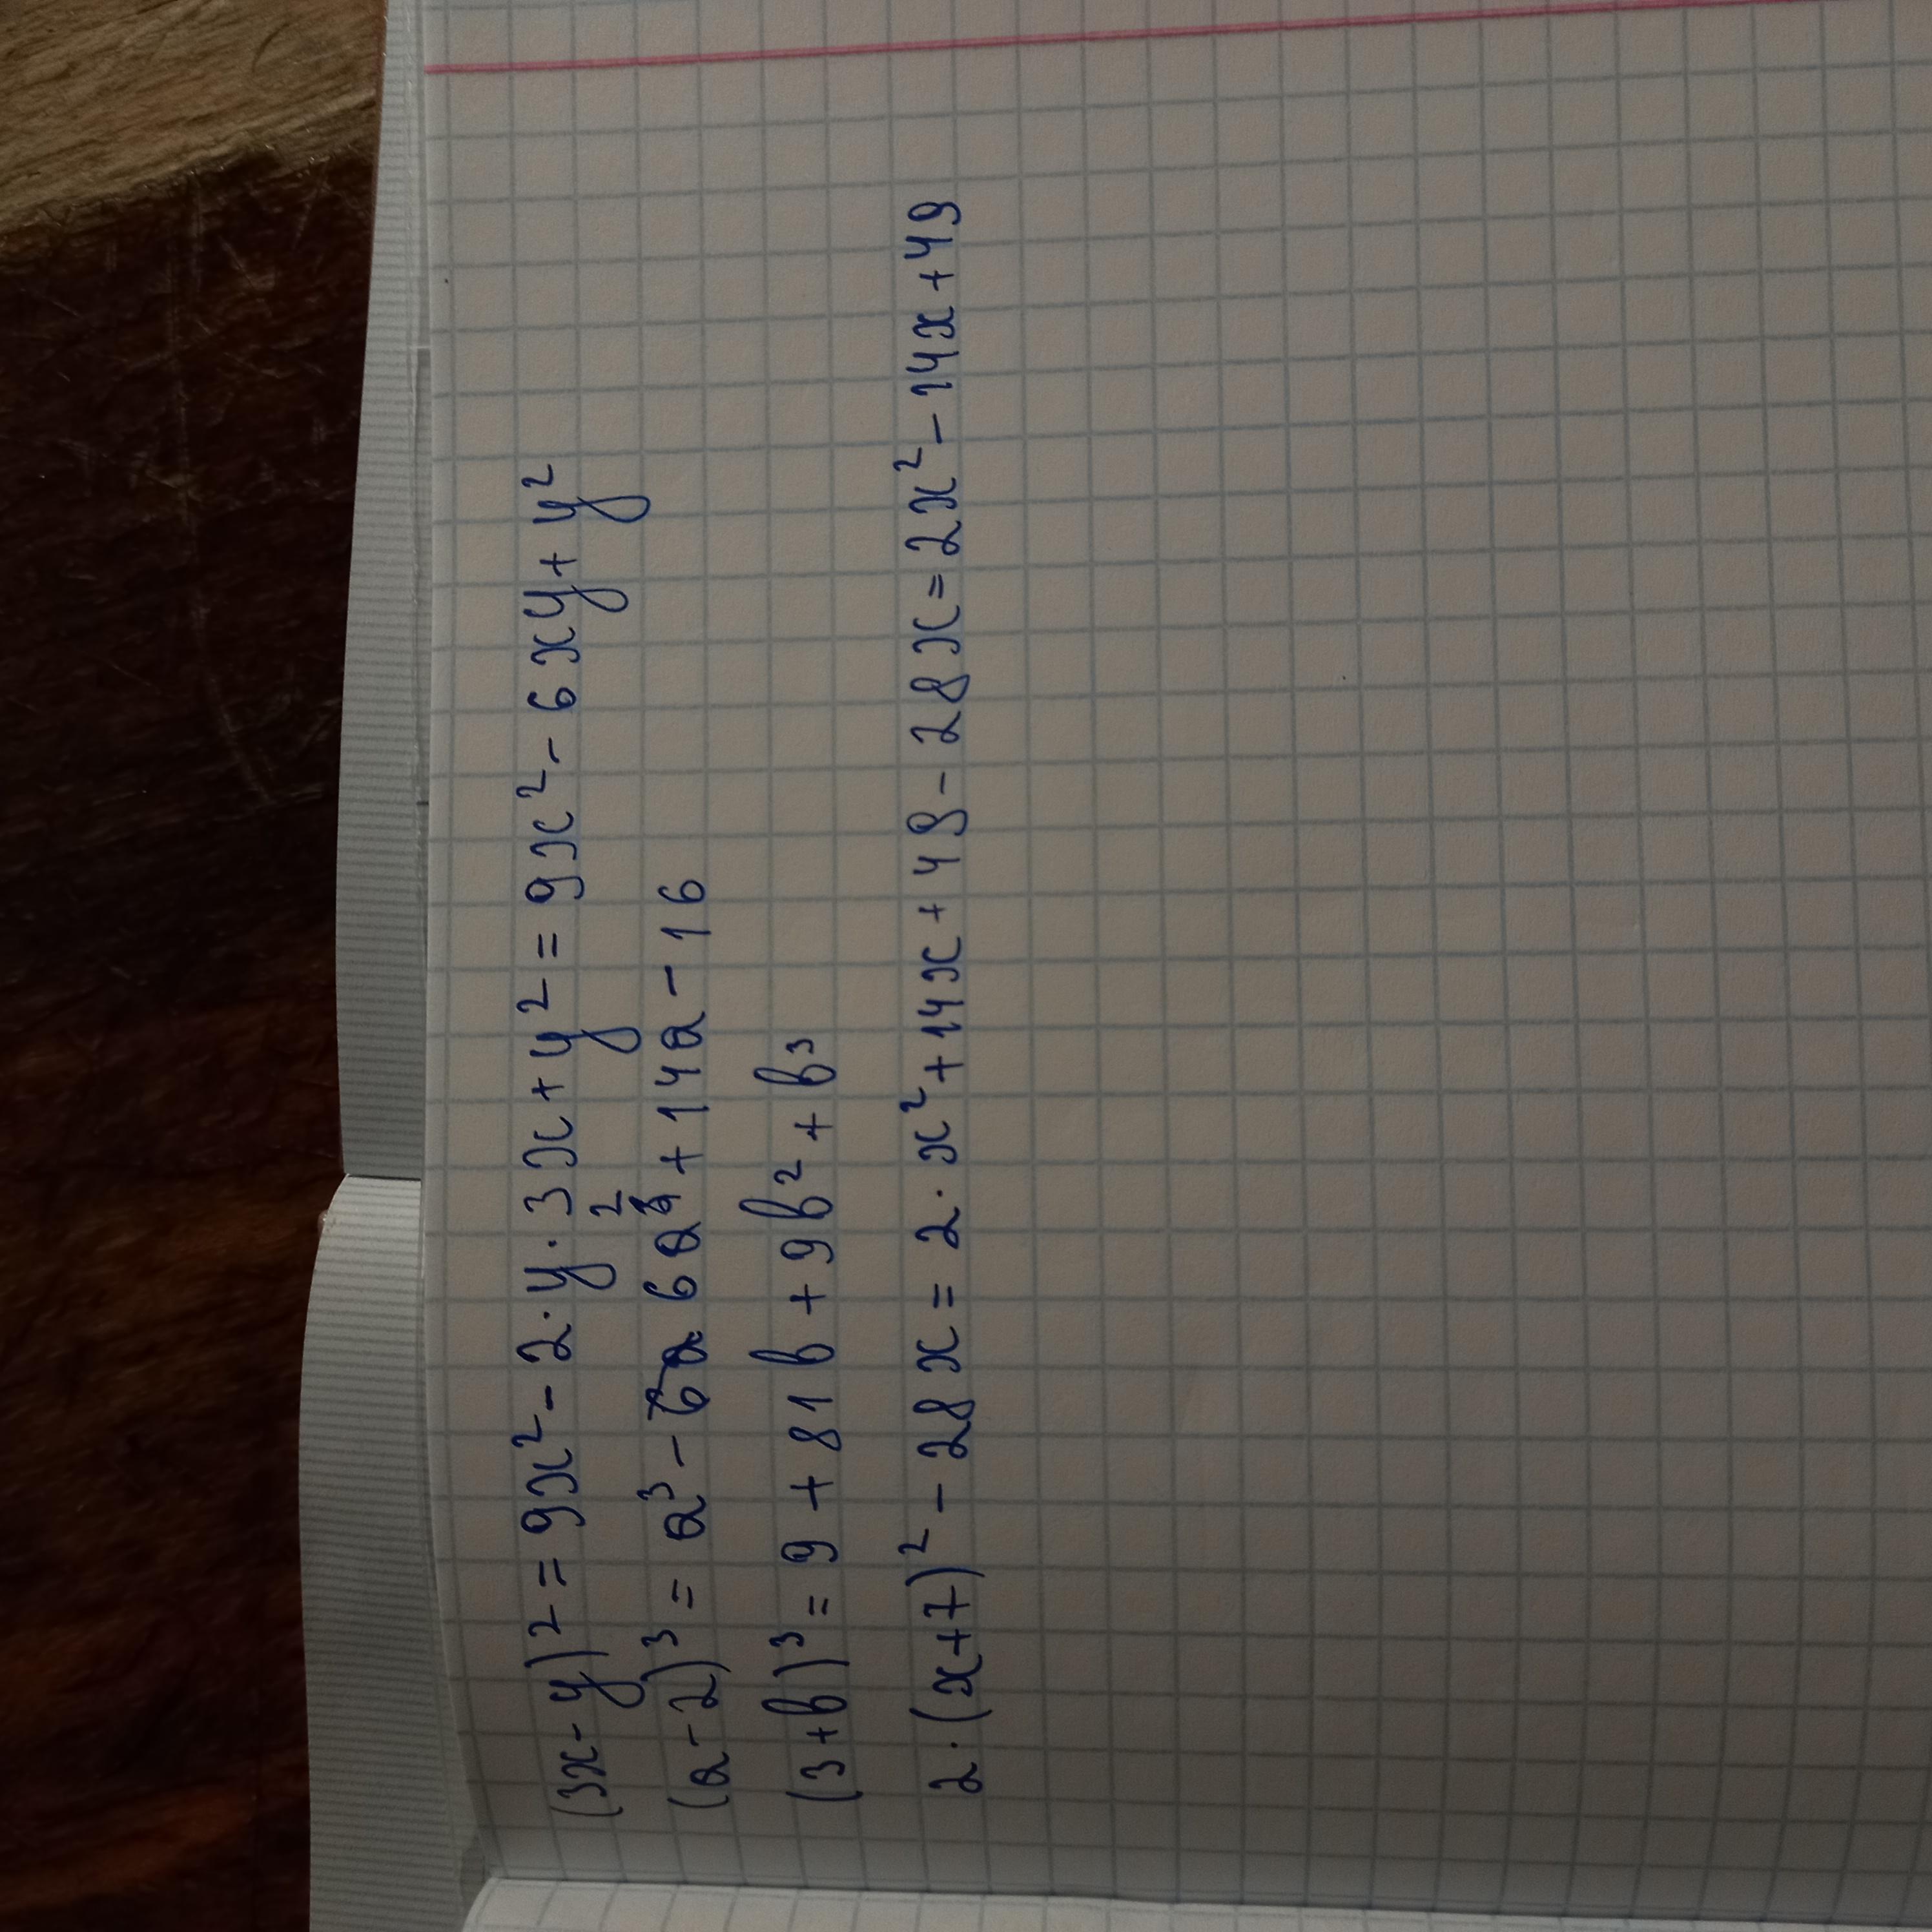 (3x-y)² = 9x² - 2·y·3x + y² = 9x² - 6xy + y²
(a-2)³ = a³ - 6a² + 14a - 16
(3+b)³ = 9 + 81b + 9b² + b³
2·(x+7)² - 28x = 2·x² + 14x + 49 - 28x = 2x² - 14x + 49